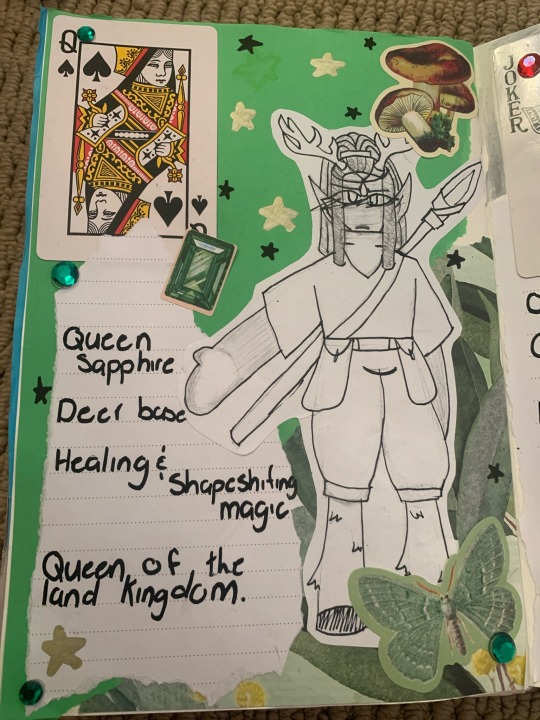 Q
Queen
Sapphire
Deer base
Healing &
Shapeshifting
magic
Queen of the
land kingdom.
JOKER